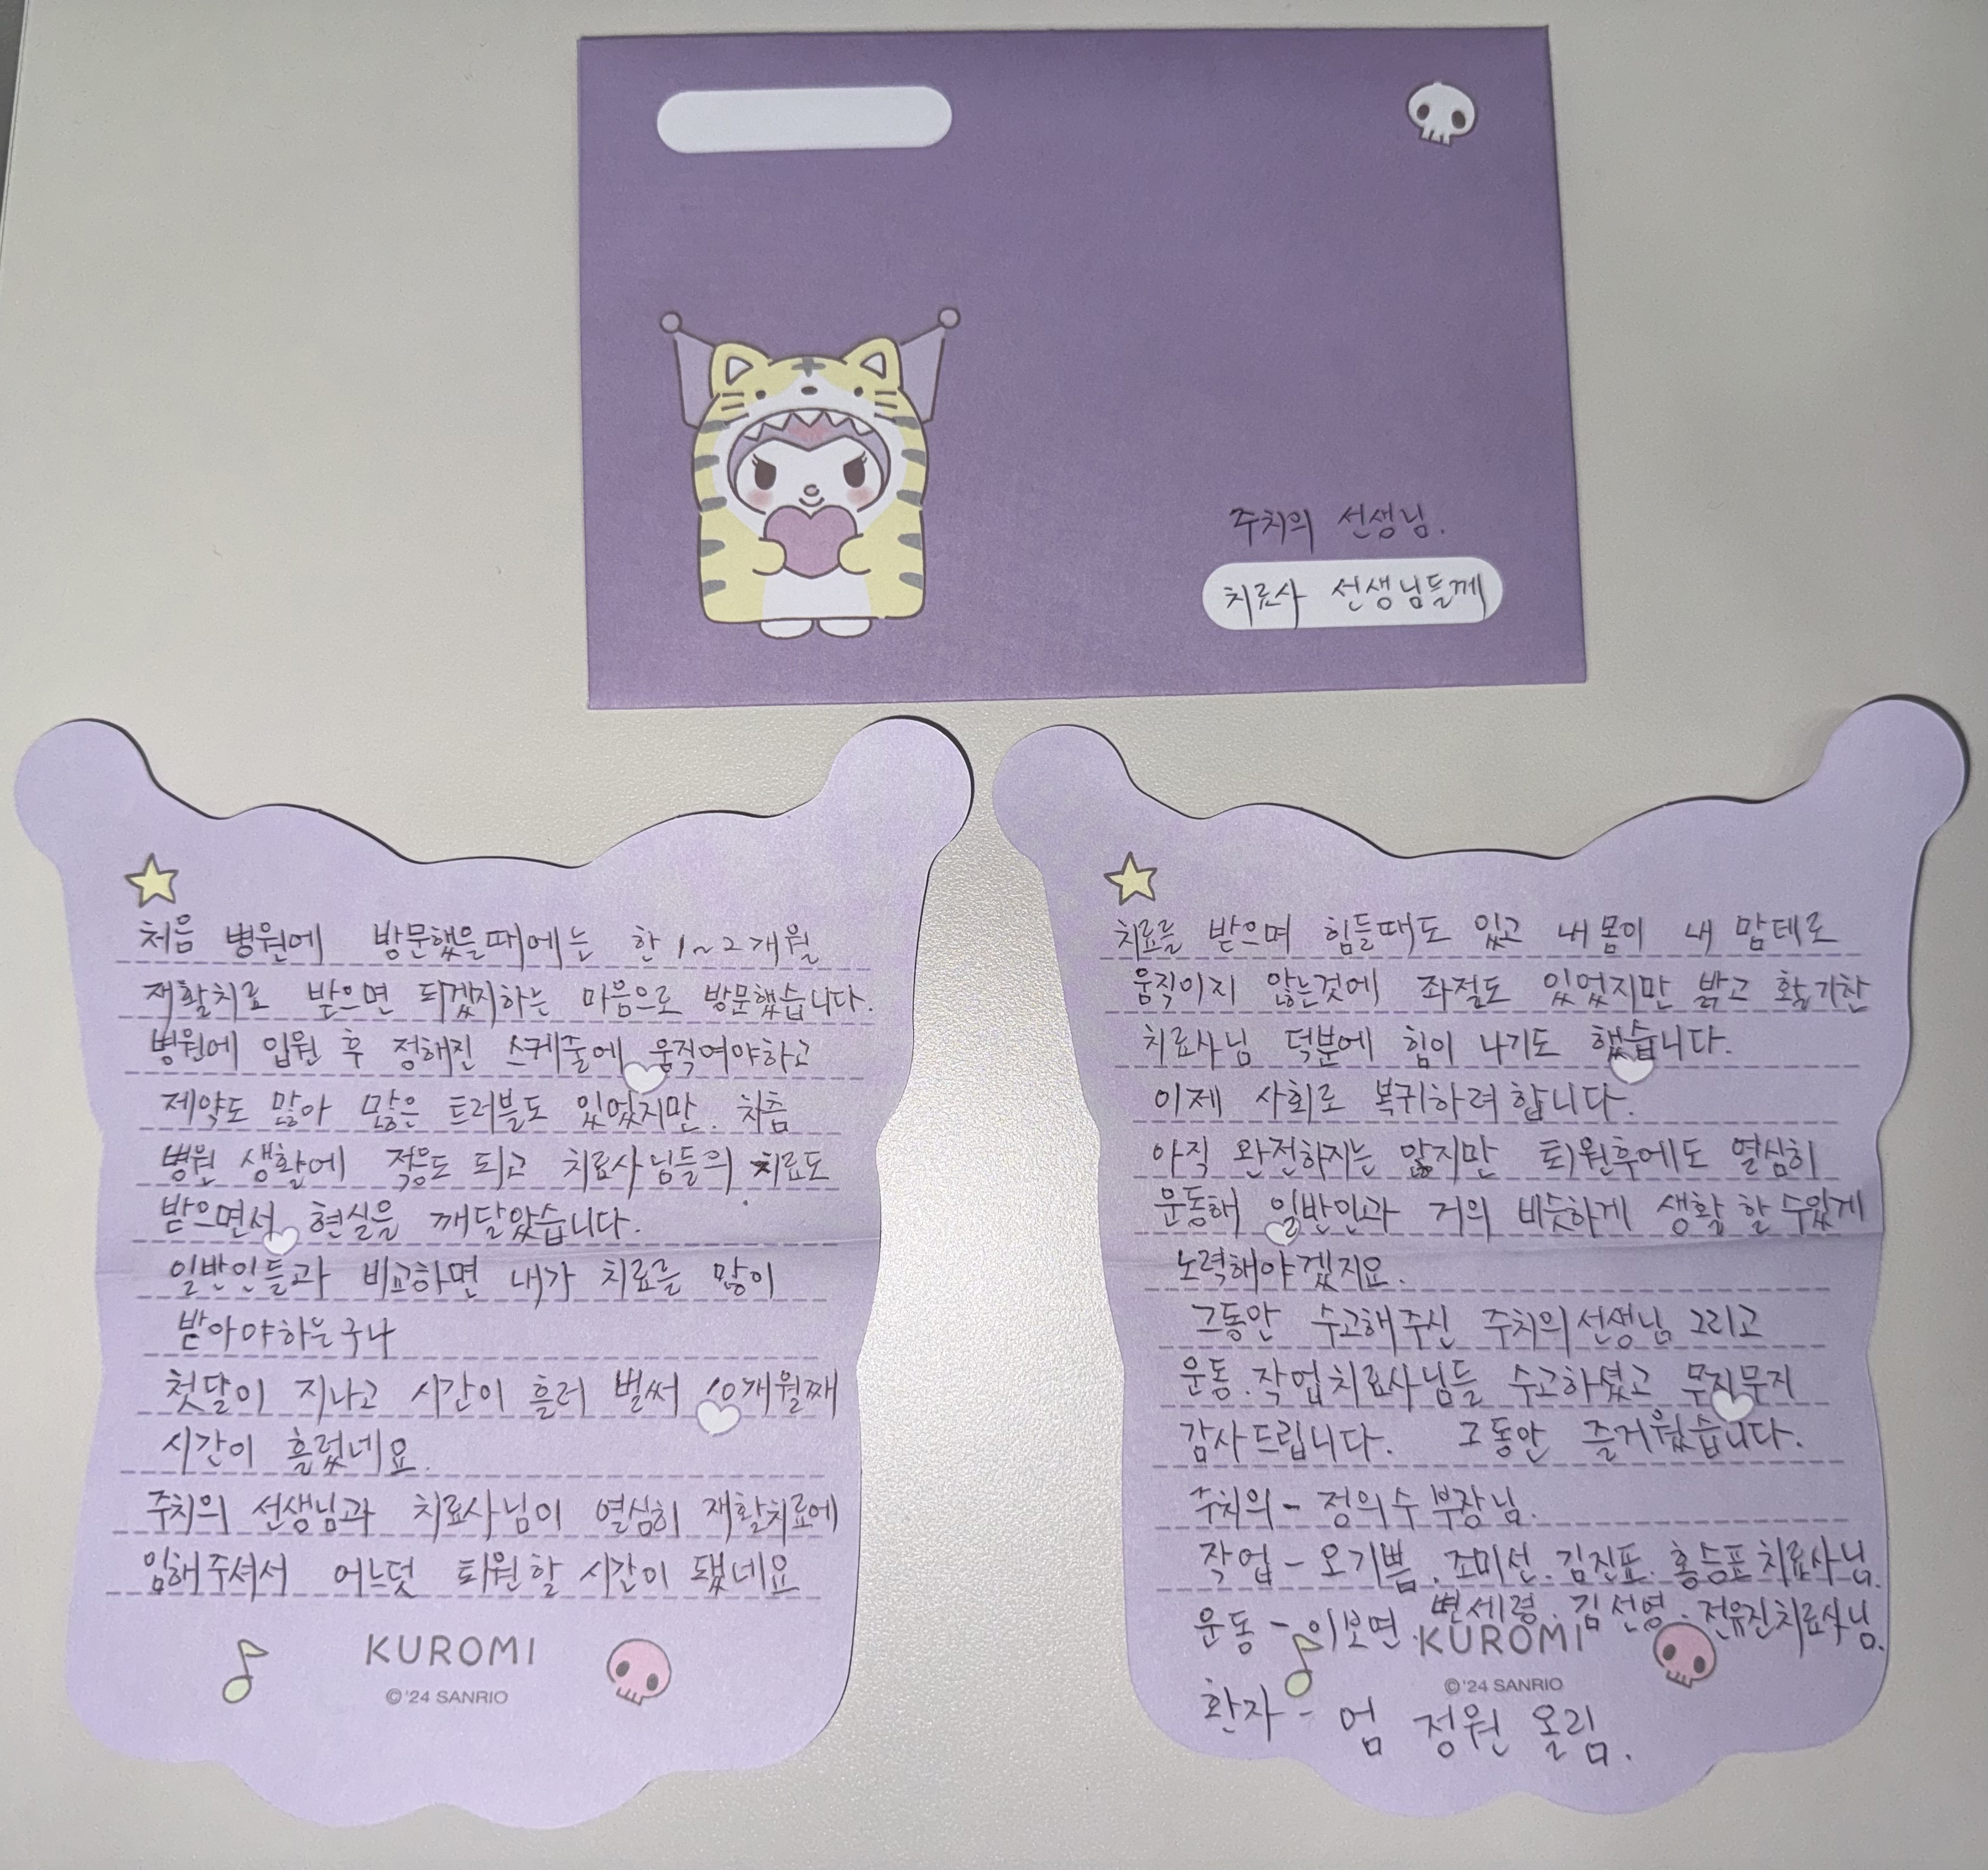 주치의 선생님.
치료사 선생님들께
처음 병원에 방문했을때에는 한 1~2개월
재활치료 받으면 되겠지하는 마음으로 방문했습니다.
병원에 입원 후 정해진 스케줄에 움직여야하고
제약도 많아 많은 트러블도 있었지만. 차츰
병원 생활에 적응도 되고 치료사님들의 치료도
받으면서 현실을 깨달았습니다.
일반인들과 비교하면 내가 치료를 많이
받아야하는구나
첫달이 지나고 시간이 흘러 벌써 10개월째
시간이 흘렀네요.
주치의 선생님과 치료사님이 열심히 재활치료에
임해주셔서 어느덧 퇴원할 시간이 됐네요
KUROMI
©'24 SANRIO
치료를 받으며 힘들때도 있고 내 몸이 내 맘테로
움직이지 않는것에 좌절도 있었지만 밝고 활기찬
치료사님 덕분에 힘이 나기도 했습니다.
이제 사회로 복귀하려 합니다.
아직 완전하지는 않지만 퇴원후에도 열심히
운동해 일반인과 거의 비슷하게 생활 할 수있게
노력해야겠지요.
그동안 수고해주신 주치의선생님 그리고
운동.작업치료사님들 수고하셨고 무지무지
감사드립니다. 그동안 즐거웠습니다.
주치의 - 정의수 부장님.
작업 - 오기쁨. 조미선. 김진표. 홍승표 치료사님.
운동 - 이보면. 변세령. 김선영. 전유진치료사님.
KUROMI
©'24 SANRIO
환자 - 엄 정원 올림.